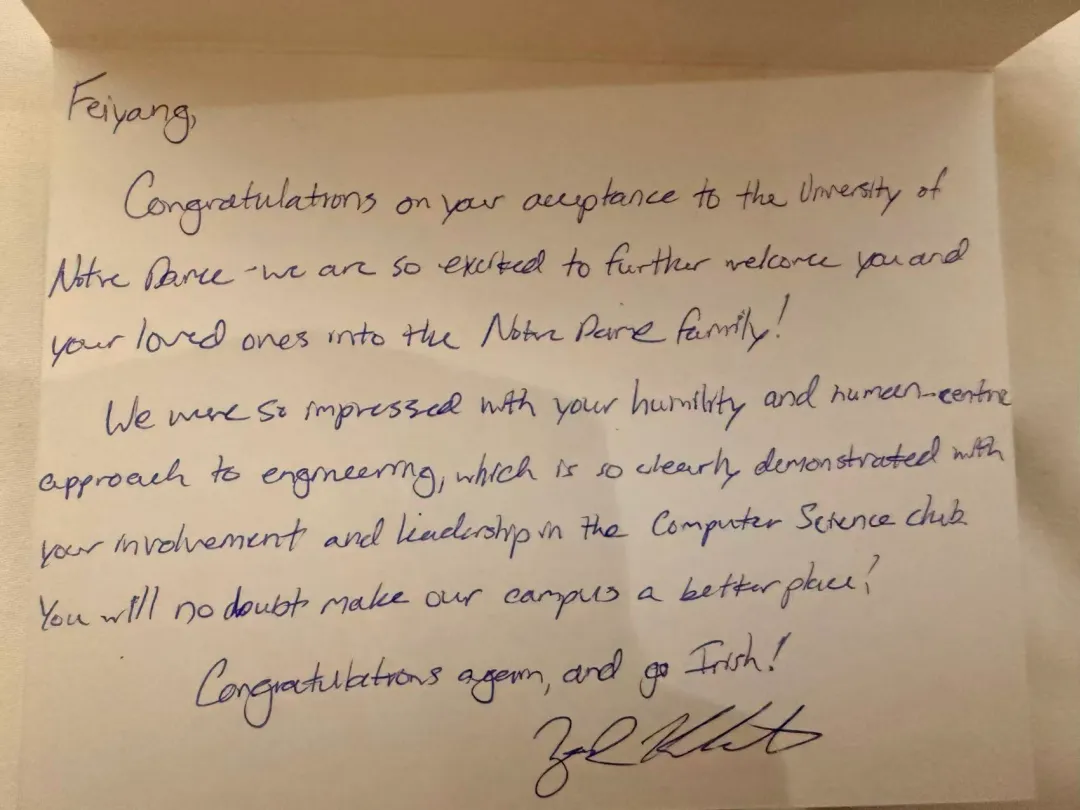 Feiyang,
Congratulations on your acceptance to the University of
Notre Dame - we are so excited to further welcome you and
your loved ones into the Notre Dame family!
We were so impressed with your humility and human-centric
approach to engineering, which is so clearly demonstrated with
your involvement and leadership in the Computer Science club.
You will no doubt make our campus a better place!
Congratulations again, and go Irish!